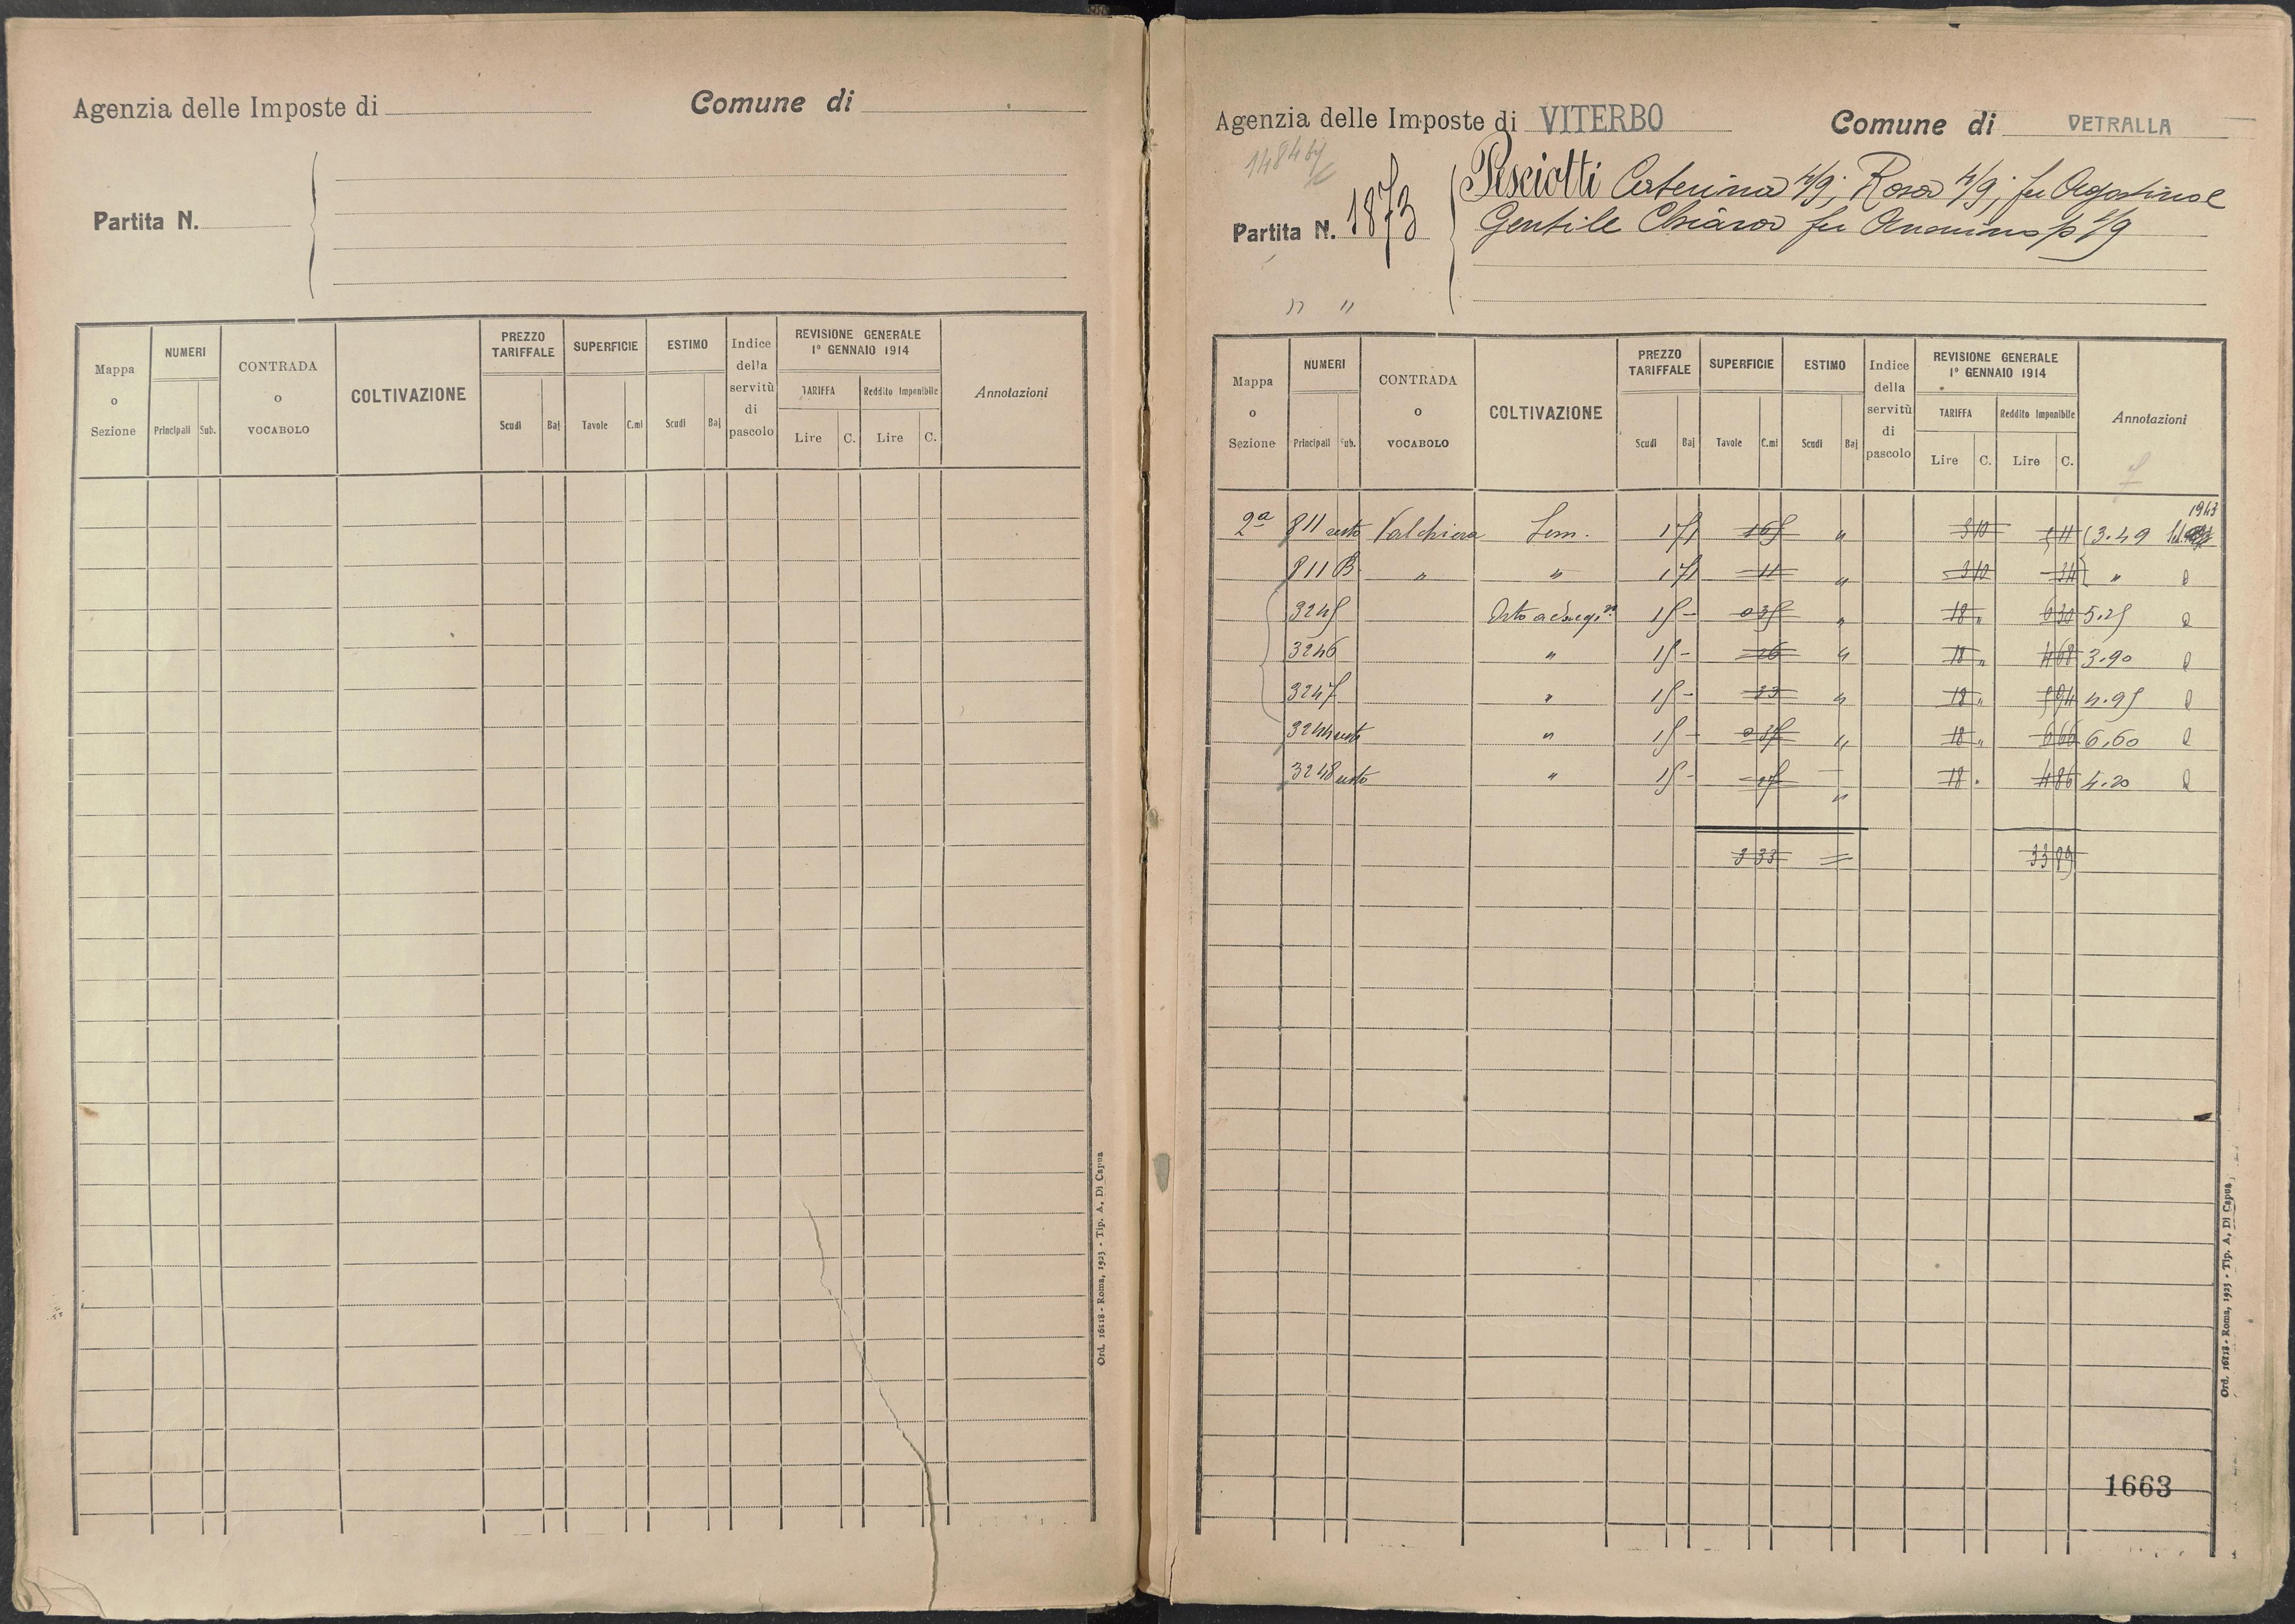 Agenzia delle Imposte di
Comune di
Partita N.
Mappa o Sezione
NUMERI
Principali Sub.
CONTRADA o VOCABOLO
COLTIVAZIONE
PREZZO TARIFFALE
Scudi Baj
SUPERFICIE
Tavole C.mi
ESTIMO
Scudi Baj
Indice della servitù di pascolo
REVISIONE GENERALE
1° GENNAIO 1914
TARIFFA
Lire C.
Reddito Imponibile
Lire C.
Annotazioni
Ord. 16118 - Roma, 1923 - Tip. A. Di Capua
Agenzia delle Imposte di VITERBO
Comune di VETRALLA
Partita N. 1873
Pesciotti Caterina 4/9; Rosa 4/9; fu Agostino e
Gentile Chiara fu Antonino p 1/9
" "
Mappa o Sezione
NUMERI
Principali Sub.
CONTRADA o VOCABOLO
COLTIVAZIONE
PREZZO TARIFFALE
Scudi Baj
SUPERFICIE
Tavole C.mi
ESTIMO
Scudi Baj
Indice della servitù di pascolo
REVISIONE GENERALE
1° GENNAIO 1914
TARIFFA
Lire C.
Reddito Imponibile
Lire C.
Annotazioni
1943
2a 811 resto Valchiera Sem. " 3 10 3.49
811 B " " " 3 10 "
3245 15 - 0 35 " 18 " 6 30 5.25
3246 " 15 - 26 " 18 " 4 68 3.90
3247 " 15 - 33 " 18 " 5 94 4.95
3244 resto " 15 - 0 37 " 18 " 6 66 6.60
3248 resto " 15 - 27 " 18 " 4 86 4.20
3 33 = 33 89
1663
Ord. 16118 - Roma, 1923 - Tip. A. Di Capua